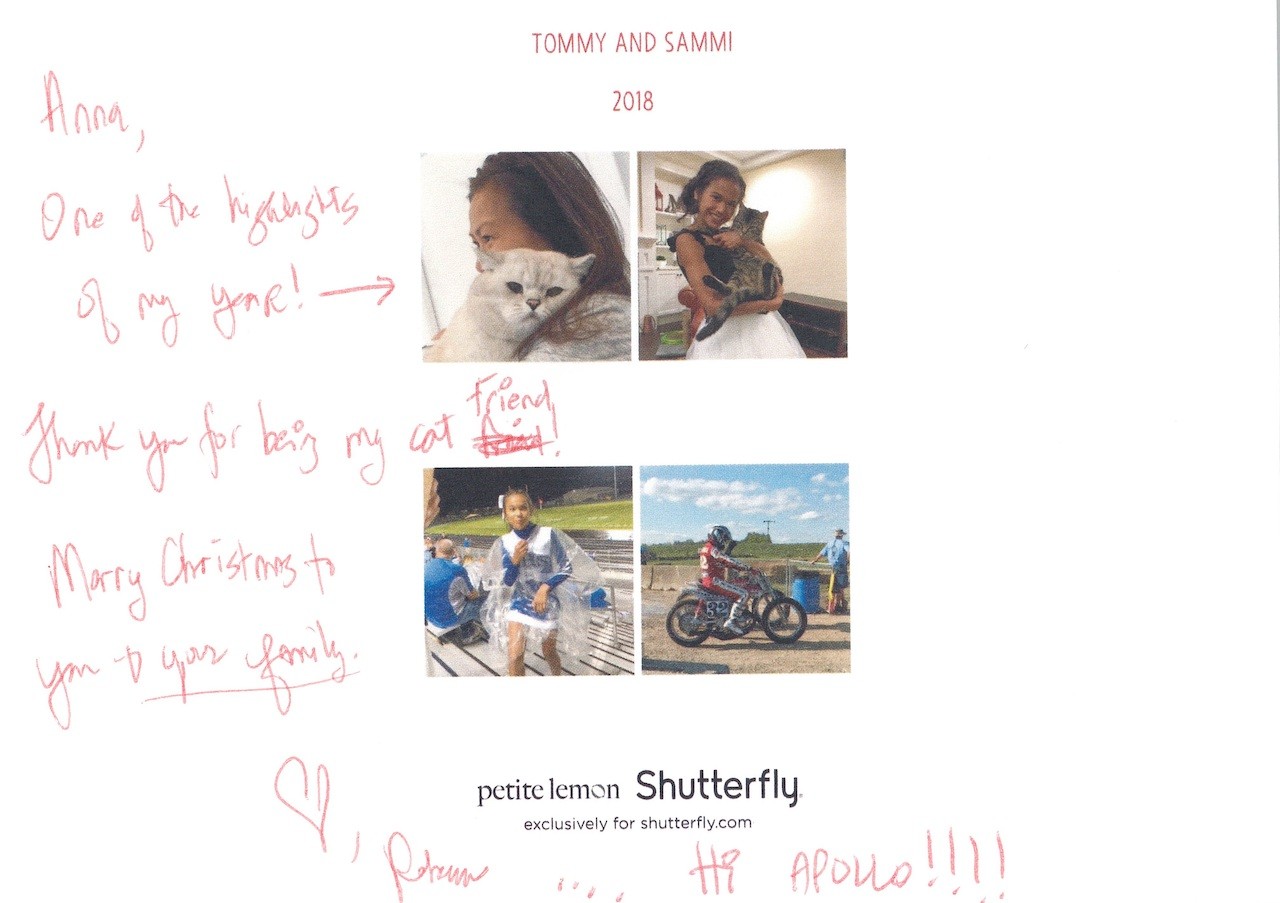 TOMMY AND SAMMI
2018
Anna,
One of the highlights
of my year! →
Thank you for being my cat Friend!
Merry Christmas to
you & your family.
petite lemon Shutterfly
exclusively for shutterfly.com
♡,
.... Hi APOLLO!!!!
32